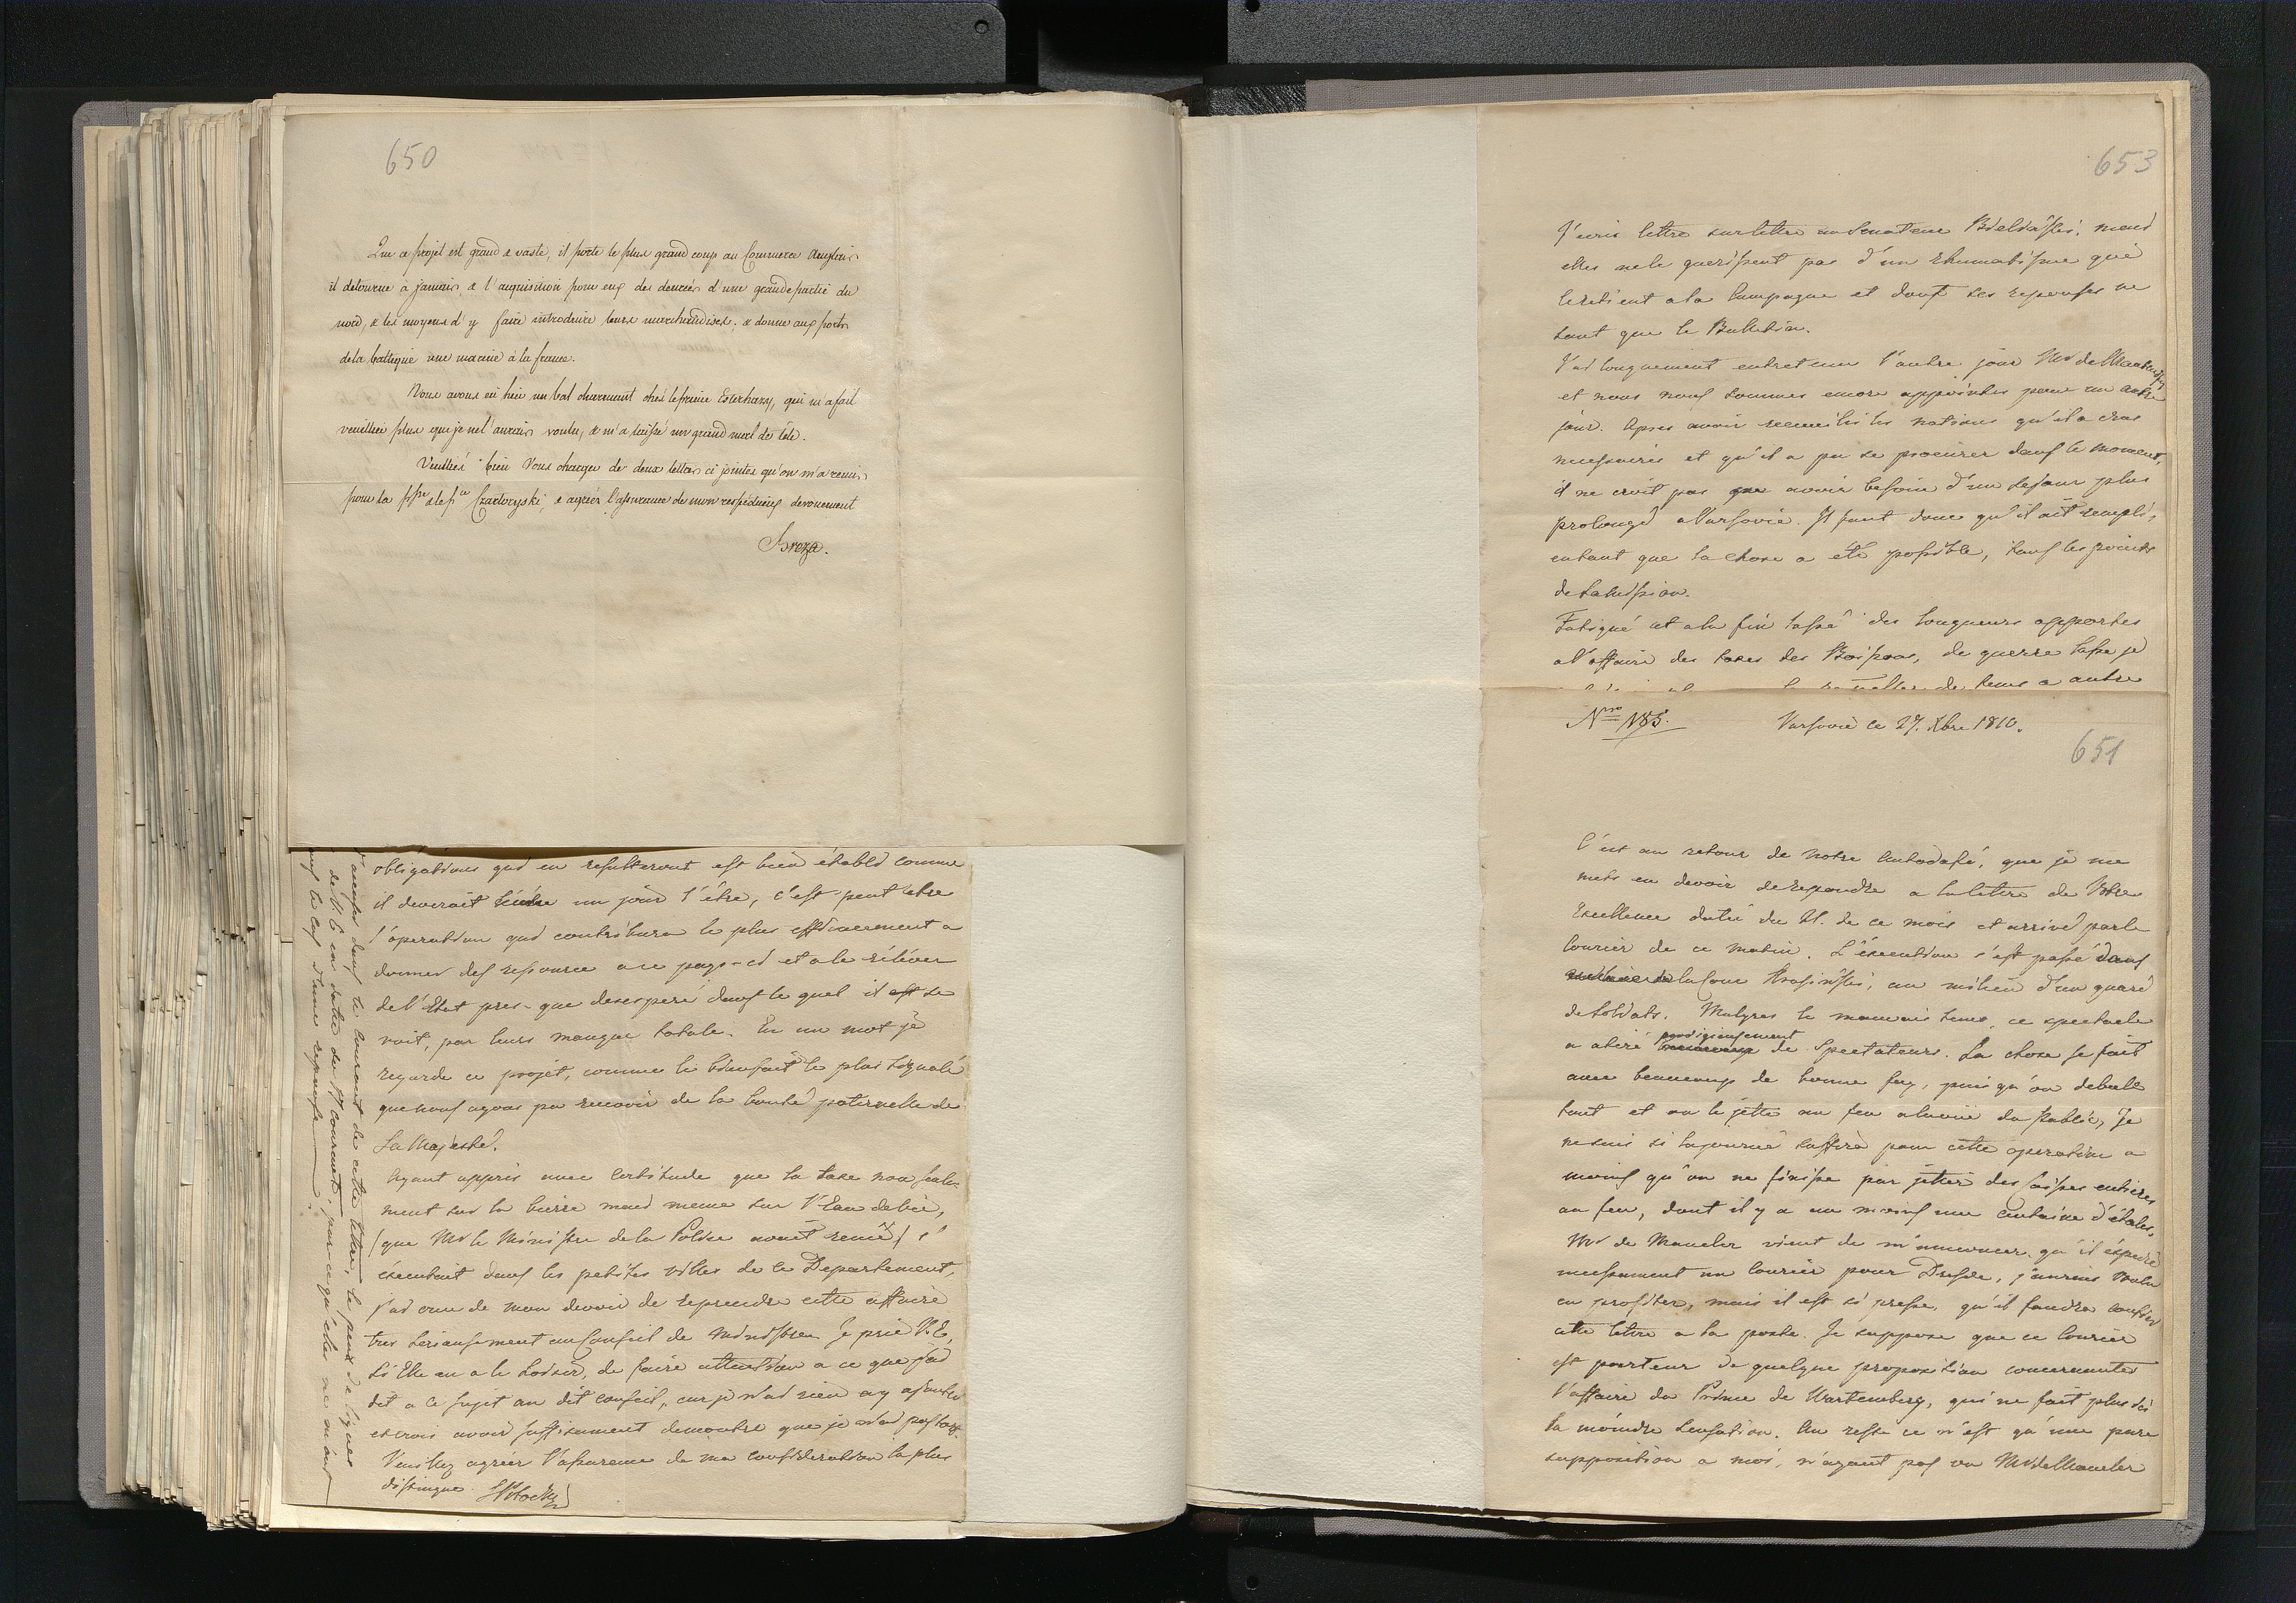 650
Que ce projet est grand & vaste, il porte le plus grand coup au Commerce Anglais
il detourne à jamais, & l'aquisition pour eux des denrées d'une grande partie du
nord, & les moyens d'y faire introduire leurs marchandises; & donne aux ports
de la baltique une marine à la france.
Nous avons eû hier un bal charmant chés le prince Esterhazy, qui m'a fait
veiller plus que je ne l'aurais voulu, & m'a laissé un grand mal de tête.
Veuillés bien Vous charger de deux lettres ci jointes qu'on m'a remis
pour la psse & le pce Czartoryski, & agréer l'assurance de mon respectueux devouement
Breza.
obligations qui en resulteront est bien établi comme
il deverait un jour l'être, c'est peut être
l'operation qui contribura le plus efficacement a
donner des resource a ce pays-ci et a le rélever
de l'Etat pres-que desesperé dans le quel il est se
voit, par leurs manque totale. En un mot je
regarde ce projet, comme le bienfait le plus signalé
que nous ayons pu recevoir de la bonté paternelle de
Sa Majesté.
Ayant appris avec certitude que la taxe non seule-
ment sur la bierre mais meme sur l'Eau de vie,
(que Mr le Ministre de la Police avait renié) s'
éxecutait dans les petites villes de ce Departement,
j'ai crue de mon devoir de reprendre cette affaire
tres serieusement au Conseil de Ministres. Je prie V.E,
si Elle en a le loisir, de faire attention a ce que j'ai
dit a ce sujet au dit conseil, car je n'ai rien a y ajouter
et crois avoir suffisament demontré que je n'ai pas tort.
Veuillez agréer l'assurence de ma consideration la plus
distingue. SPotocki
accuser dans le courant de cette lettre, le peux de lignes
de V. E. en date du 17 courant, par ce qu'elles ne m'ont
mis le cas d'une reponse
653
J'ecris lettre sur lettre au Senateur Bielinski, mais
elles ne le guerissent pas d'un rhumatisme qui
le retient a la Campagne et dont ses reponses ne
sont que le Bulletin.
J'ai longuement entretenu l'autre jour Mr de
et nous nous sommes encore appointés pour un autre
jour. Apres avoir recueilis les notions qu'il a crus
necessaires et qu'il a pu se procurer dans le moment,
il ne croit pas avoir besoin d'un sejour plus
prolongé a Varsovie. Il faut donc qu'il ait rempli,
entant que la chose a été possible, tous les points
de sa mission.
Fatigué et a la fin lassé des longueurs apportés
a l'affaire des taxes des Boissons, de guerre lasse je
de tems a autre
Nro 185. Varsovie ce 27. Xbre 1810.
651
C'est au retour de notre Autodafé, que je me
mets en devoir de repondre a la lettre de Votre
Excellence datée du 21. de ce mois et arrivé par le
Courier de ce matin. L'éxecution s'est passé dans
la Cour Krasinski, au milieu d'un quaré
de soldats. Malgres le mauvais tems, ce spectacle
prodigieusement
a atiré de Spectateurs. La chose se fait
avec beaucoup de bonne foy, puis qu'on deballe
tout et on le jette au feu a la vüe du Public, Je
ne sais si la journé suffira pour cette operation a
moins qu'on ne finisse par jetter des Caisses entieres
au feu, dont il y a au moins une centaine d'étalés,
Mr de Maucler vient de m'annoncer qu'il éxpedie
incessament un Courier pour Dresde, j'aurais voulu
en profiter, mais il est si pressé, qu'il faudra confier
cette lettre a la poste. Je suppose que ce Courier
est porteur de quelque proposition concernante
l'affaire du Prince de Wurtemberg, qui ne fait plus ici
la moindre sensation. Au reste ce n'est qu'une pure
supposition a moi, n'ayant pas vu Mr de Maucler